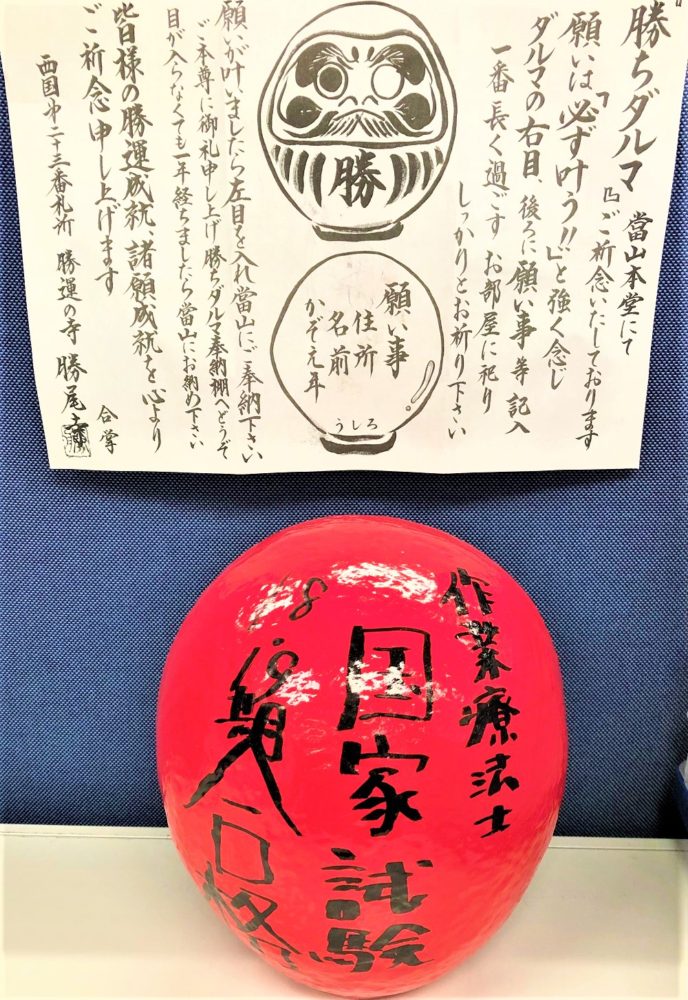 勝ちダルマ 當山本堂にて
ご祈念いたしております
願いは「必ず叶う!!」と強く念じ
ダルマの右目、後ろに願い事等記入
一番長く過ごすお部屋に祀り
しっかりとお祈り下さい
勝
願い事
住所
名前
かぞえ年
うしろ
願いが叶いましたら左目を入れ當山にご奉納下さい
ご本尊に御礼申し上げ勝ちダルマ奉納棚へどうぞ
目が入らなくても一年経ちましたら當山にお納め下さい
皆様の勝運成就、諸願成就を心より
ご祈念申し上げます
合掌
西国第二十三番札所 勝運の寺 勝尾寺
作業療法士
国家試験
合格